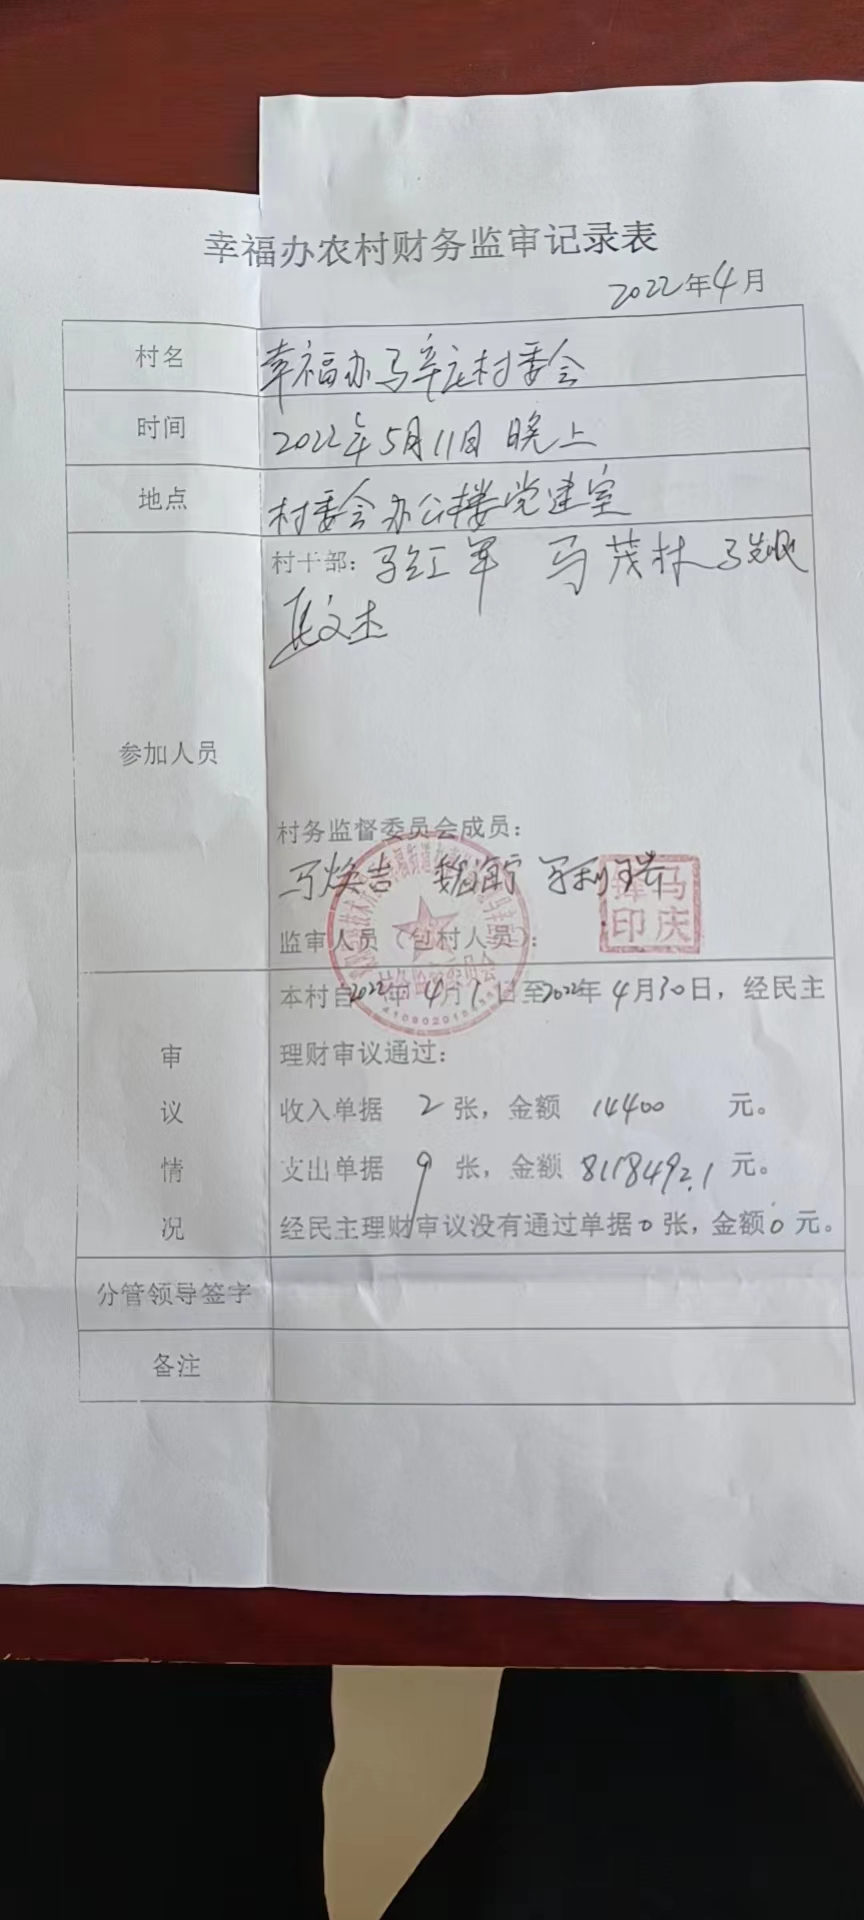 幸福办农村财务监审记录表
2022年4月
村名 幸福办马辛庄村委会
时间 2022年5月11日 晚上
地点 村委会办公楼党建室
村干部: 马红军 马茂林
文杰
参加人员
村务监督委员会成员:
马焕吉 魏海宁 马利瑞
马庆 印
监审人员（包村人员）:
村务监督委员会
本村自2022年4月1日至2022年4月30日，经民主
审 理财审议通过:
议 收入单据 2 张，金额 14400 元。
情 支出单据 9 张，金额 8118492.1 元。
况 经民主理财审议没有通过单据0张，金额0元。
分管领导签字
备注